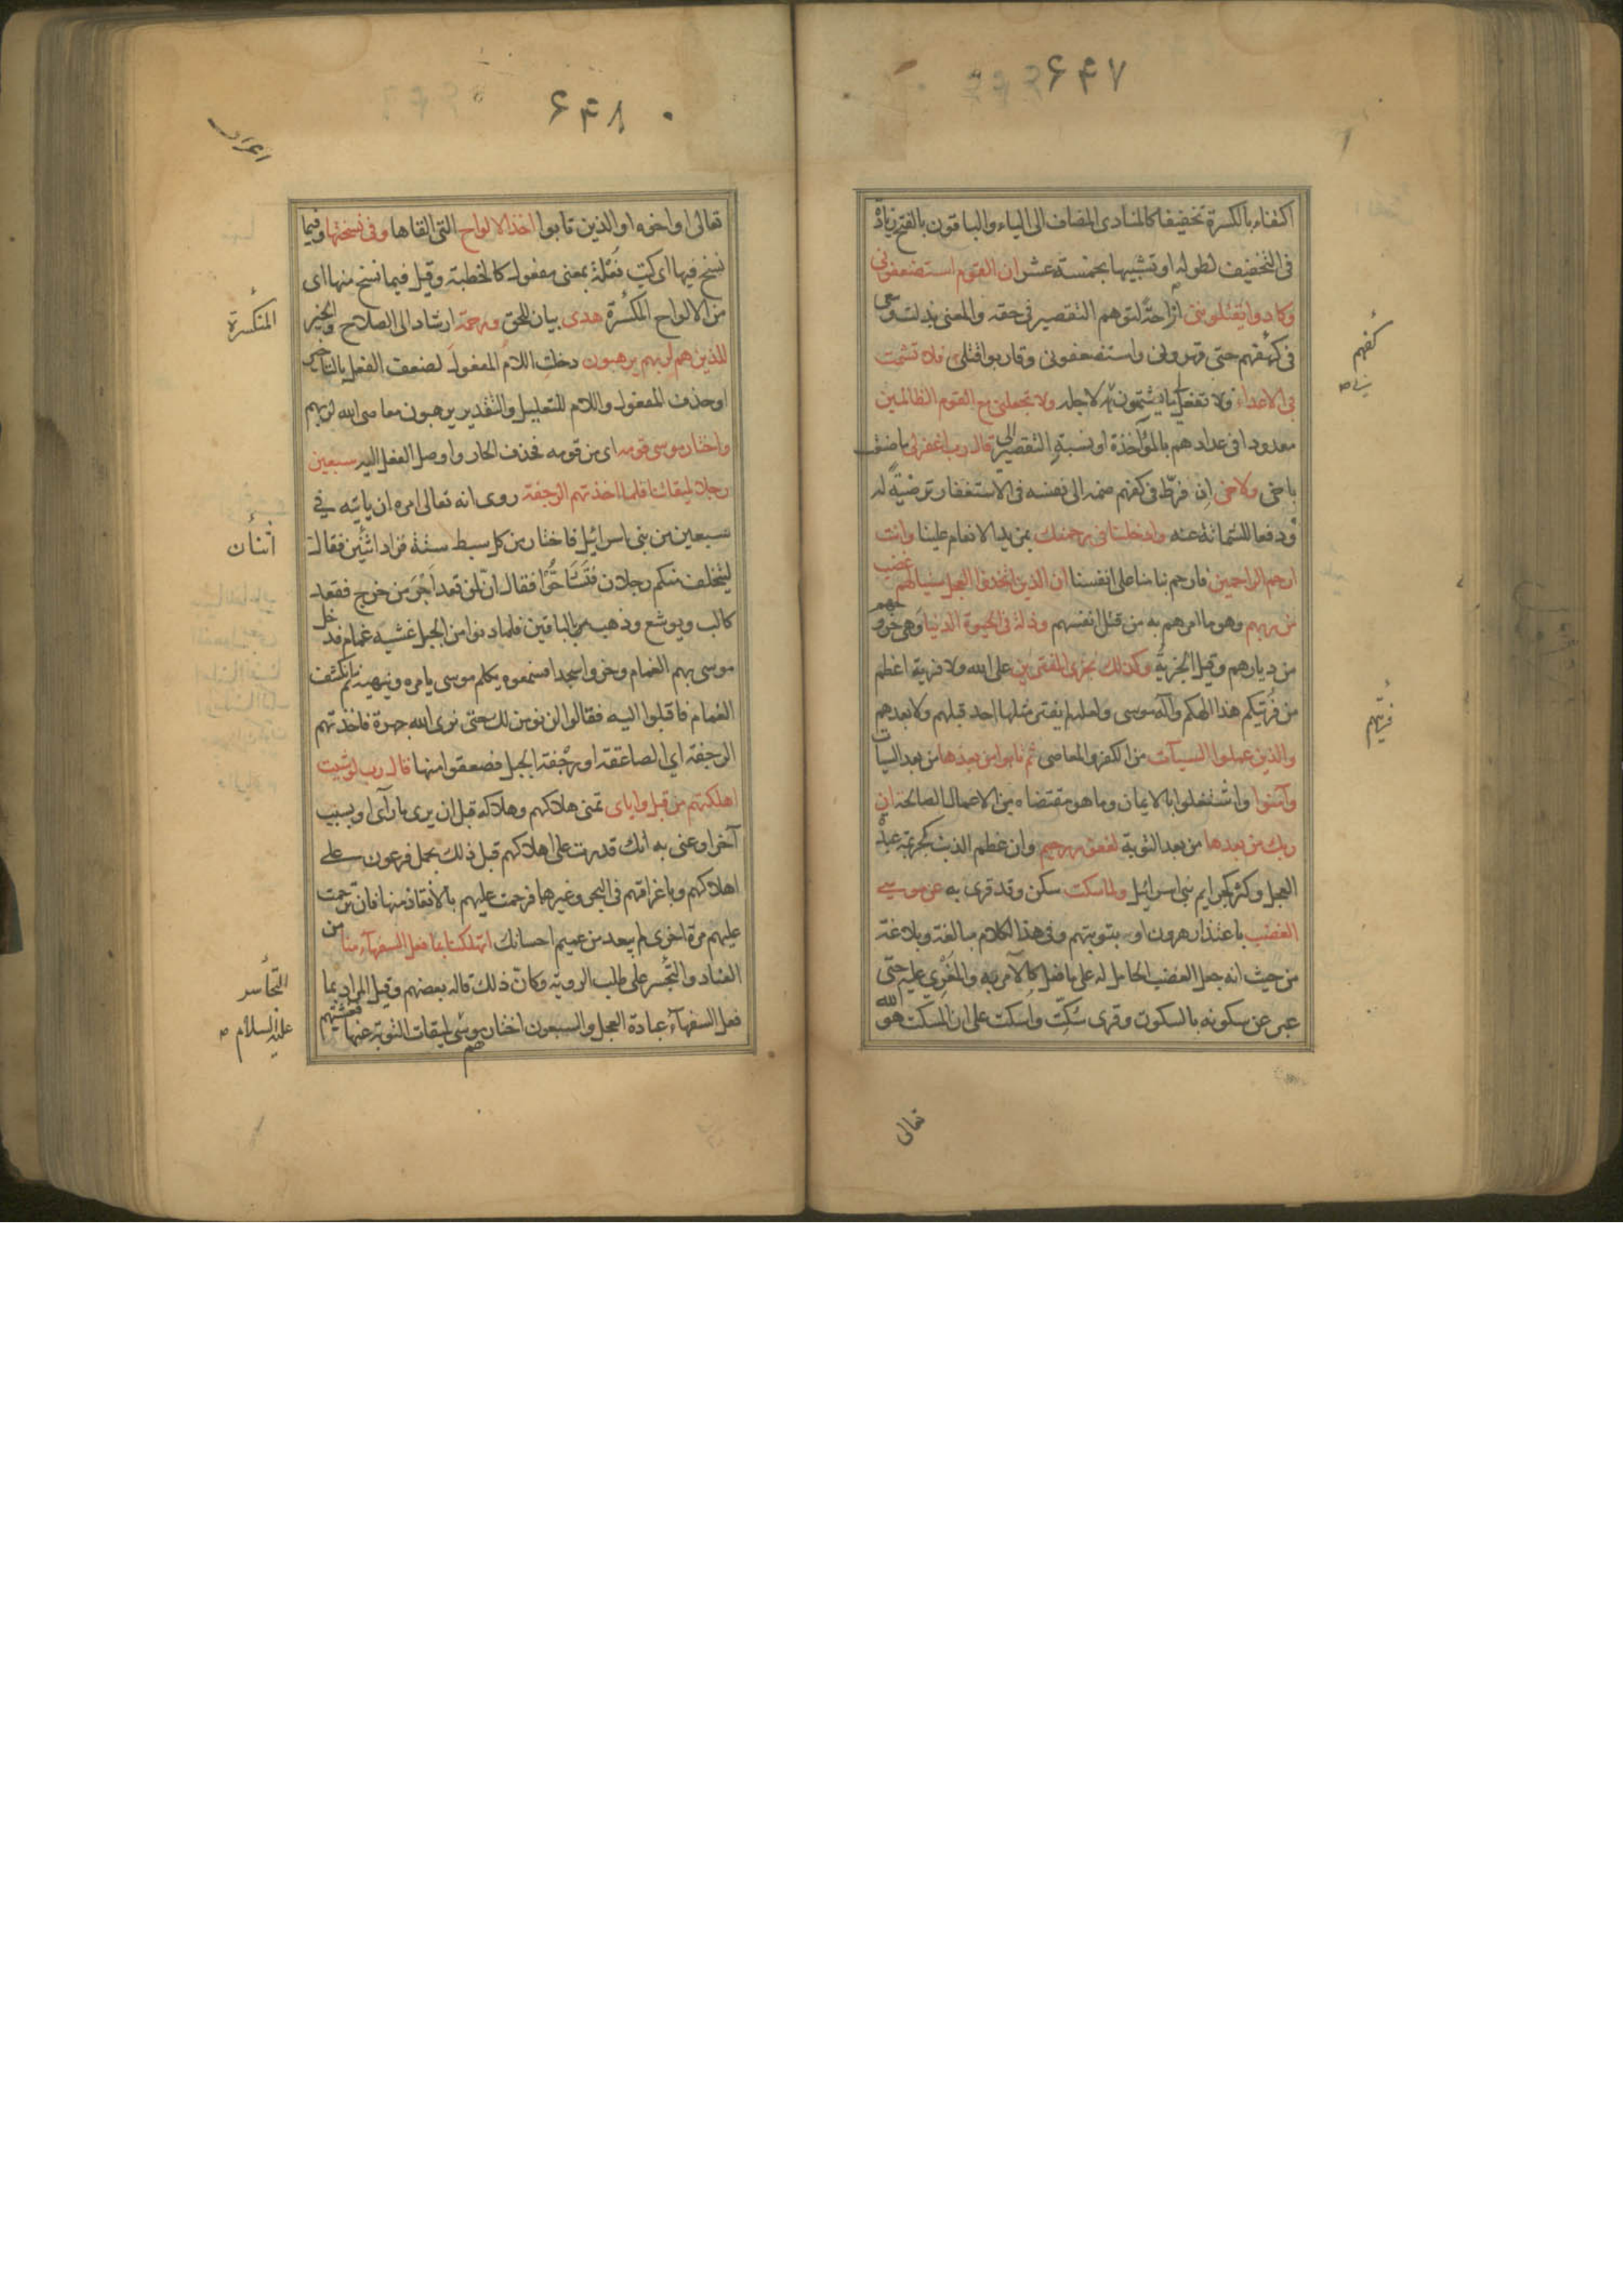 ۶۴۷
اكتفاء بالكسرة تخفيفا كالمنادى المضاف الى الياء والباقون بالفتح زيادة
فى التخفيف لطوله او تشبيها بخمسة عشر ان القوم استضعفونى
وكادوا يقتلوننى ازاحة لتوهم التقصير فى حقه والمعنى بذلت وسعى
فى كفهم حتى قهرونى واستضعفونى وقاربوا قتلى فلا تشمت
بى الاعداء ولا تفعل بى ما يشتمون بى لاجله ولا تجعلنى مع القوم الظالمين
معدودا فى عدادهم بالمؤاخذة او نسبة التقصير الى قال رب اغفر لى ما صنعت
باخى ولاخى ان فرط فى كفهم ضمه الى نفسه فى الاستغفار ترضية له
ودفعا للشماتة عنه وادخلنا فى رحمتك بمزيد الانعام علينا وانت
ارحم الراحمين فارحم بنا منا على انفسنا ان الذين اتخذوا العجل سينالهم غضب
من ربهم وهو ما امرهم به من قتل انفسهم وذلة فى الحيوة الدنيا وهى خروجهم
من ديارهم وقيل الجزية وكذلك نجزى المفترين على الله ولا فرية اعظم
من فريتكم هذا الهكم واله موسى ولعله لم يفتر مثلها احد قبلهم ولا بعدهم
والذين عملوا السيآت من الكفر والمعاصى ثم تابوا من بعدها من بعد السيآت
وآمنوا واشتغلوا بالايمان وما هو مقتضاه من الاعمال الصالحة ان
ربك من بعدها من بعد التوبة لغفور رحيم وان عظم الذنب كجريمة عبدة
العجل وكثر كجرايم بنى اسرائيل ولما سكت سكن وقد قرى به عن موسى
الغضب باعتذار هرون او بتوبتهم وفى هذا الكلام مبالغة وبلاغة
من حيث انه جعل الغضب الحامل له على ما فعل كالآمر به والمغرى عليه حتى
عبر عن سكوته بالسكون وقرى سكت واسكت على ان المسكت هو الله
كفهم
فريتهم
تعالى
۶۴۸
اعراف
تعالى او اخوه او الذين تابوا اخذ الالواح التى القاها وفى نسختها وفيما
نسخ فيها اى كتب فعلة بمعنى مفعول كالخطبة وقيل فيما نسخ منها اى
من الالواح المكسرة هدى بيان للحق ورحمة ارشاد الى الصلاح والخير
للذين هم لربهم يرهبون دخلت اللام المفعول لضعف الفعل بالتاخير
او حذف المفعول واللام للتعليل والتقدير يرهبون معاصى الله لربهم
واختار موسى قومه اى من قومه فحذف الجار واوصل الفعل اليه سبعين
رجلا لميقاتنا فلما اخذتهم الرجفة روى انه تعالى امره ان ياتيه فى
سبعين من بنى اسرائيل فاختار من كل سبط ستة فزاد اثنين فقال
ليتخلف منكم رجلان فتشاحوا فقال ان لمن قعد اجر من خرج فقعد
كالب ويوشع وذهب مع الباقين فلما دنوا من الجبل غشيه غمام فدخل
موسى بهم الغمام وخروا سجدا فسمعوه يكلم موسى يامره وينهيه ثم انكشف
الغمام فاقبلوا اليه فقالوا لن نومن لك حتى نرى الله جهرة فاخذتهم
الرجفة اى الصاعقة او رجفة الجبل فصعقوا منها قال رب لو شيت
اهلكتهم من قبل واياى تمنى هلاكهم وهلاكه قبل ان يرى ما رآى او بسبب
آخر او عنى به انك قدرت على اهلاكهم قبل ذلك بحمل فرعون على
اهلاكهم وباغراقهم فى البحر وغيرها فرحمت عليهم بالانقاذ منها فان ترحمت
عليهم مرة اخرى لم يبعد من عميم احسانك اتهلكنا بما فعل السفهآء منا من
العناد والتجسر على طلب الروية وكان ذلك قاله بعضهم وقيل المراد بما
فعل السفهآء عبادة العجل والسبعون اختارهم موسى لميقات التوبة عنها فغشيتهم
المنكسرة
اثنان
التجاسر
عليه السلام